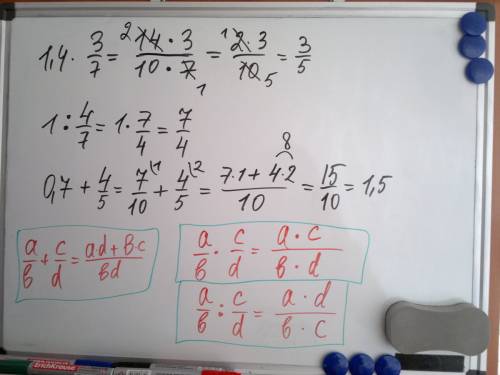 1,4 · 3/7 = 2 14 · 3 / 10 · 7 1 = 1 2 · 3 / 10 5 = 3/5
1 : 4/7 = 1 · 7/4 = 7/4
8
0,7 + 4/5 = 7/10 \1 + 4/5 \2 = 7·1 + 4·2 / 10 = 15/10 = 1,5
a/b + c/d = ad + b·c / bd
a/b · c/d = a · c / b · d
a/b : c/d = a · d / b · c
ErichKrause